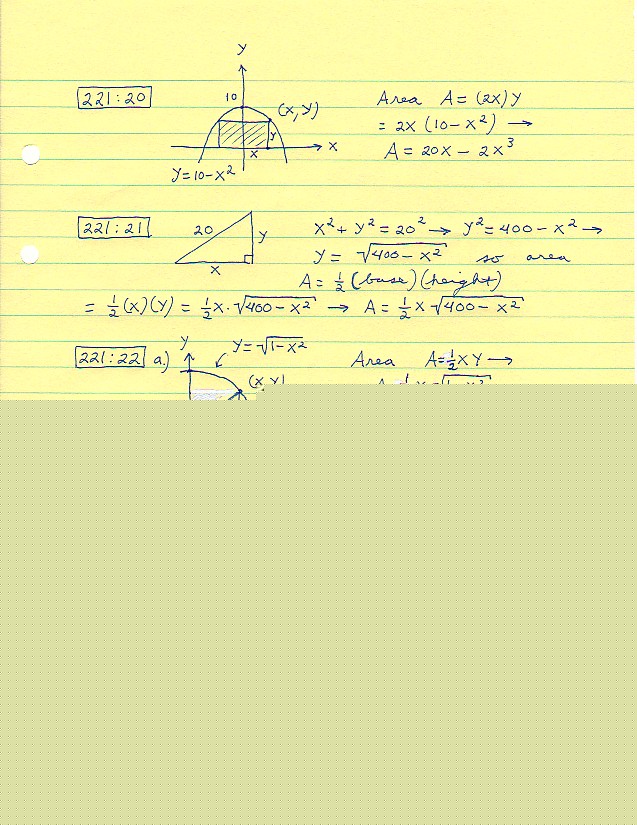 y
221:20
10
(x, y)
Area A = (2x) y
= 2x (10 - x²) →
y
x
x
A = 20x - 2x³
y = 10 - x²
221:21
20
y
x
x² + y² = 20² → y² = 400 - x² →
y = √400 - x² so area
A = ½ (base) (height)
= ½ (x) (y) = ½ x · √400 - x² → A = ½ x √400 - x²
221:22 a.)
y
y = √1 - x²
Area A = ½ x y →
(x, y)